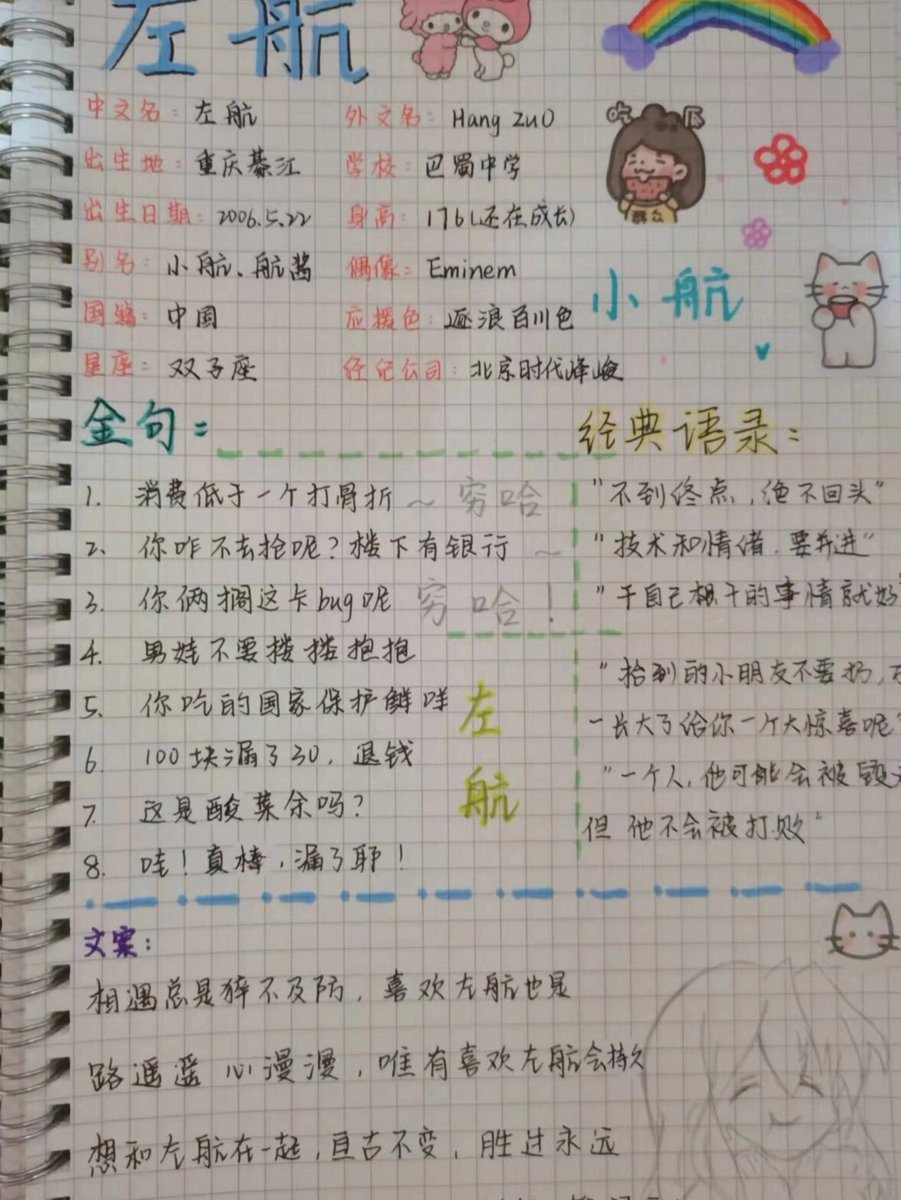 左航
中文名：左航 外文名：Hang zuo
吃瓜
出生地：重庆綦江 学校：巴蜀中学
群众
出生日期：2006.5.22 身高：176(还在成长)
别名：小航、航酱 偶像：Eminem
小航
国籍：中国 应援色：逐浪百川色
星座：双子座 经纪公司：北京时代峰峻
金句：
1. 消费低于一个打骨折～穷哈
2. 你咋不去抢呢？楼下有银行～
3. 你俩搁这卡bug呢 穷哈！
4. 男娃不要搂搂抱抱
5. 你吃的国家保护鲜哇
6. 100块漏了30，退钱
7. 这是酸菜余吗？
8. 哇！真棒，漏了耶！
左航
经典语录：
"不到终点，绝不回头"
"技术和情绪，要并进"
"干自己想干的事情就好"
"拾到的小朋友不要扔，
一长大了给你一个大惊喜呢"
"一个人，他可能会被毁
但他不会被打败"
文案：
相遇总是猝不及防，喜欢左航也是
路遥遥 心漫漫，唯有喜欢左航会持久
想和左航在一起，亘古不变，胜过永远